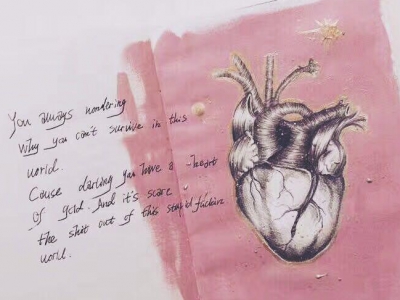 You always wondering
Why you can't survive in this
world.
Cause darling you have a heart
Of gold. And it's scare
the shit out of this stupid fuckin
world.